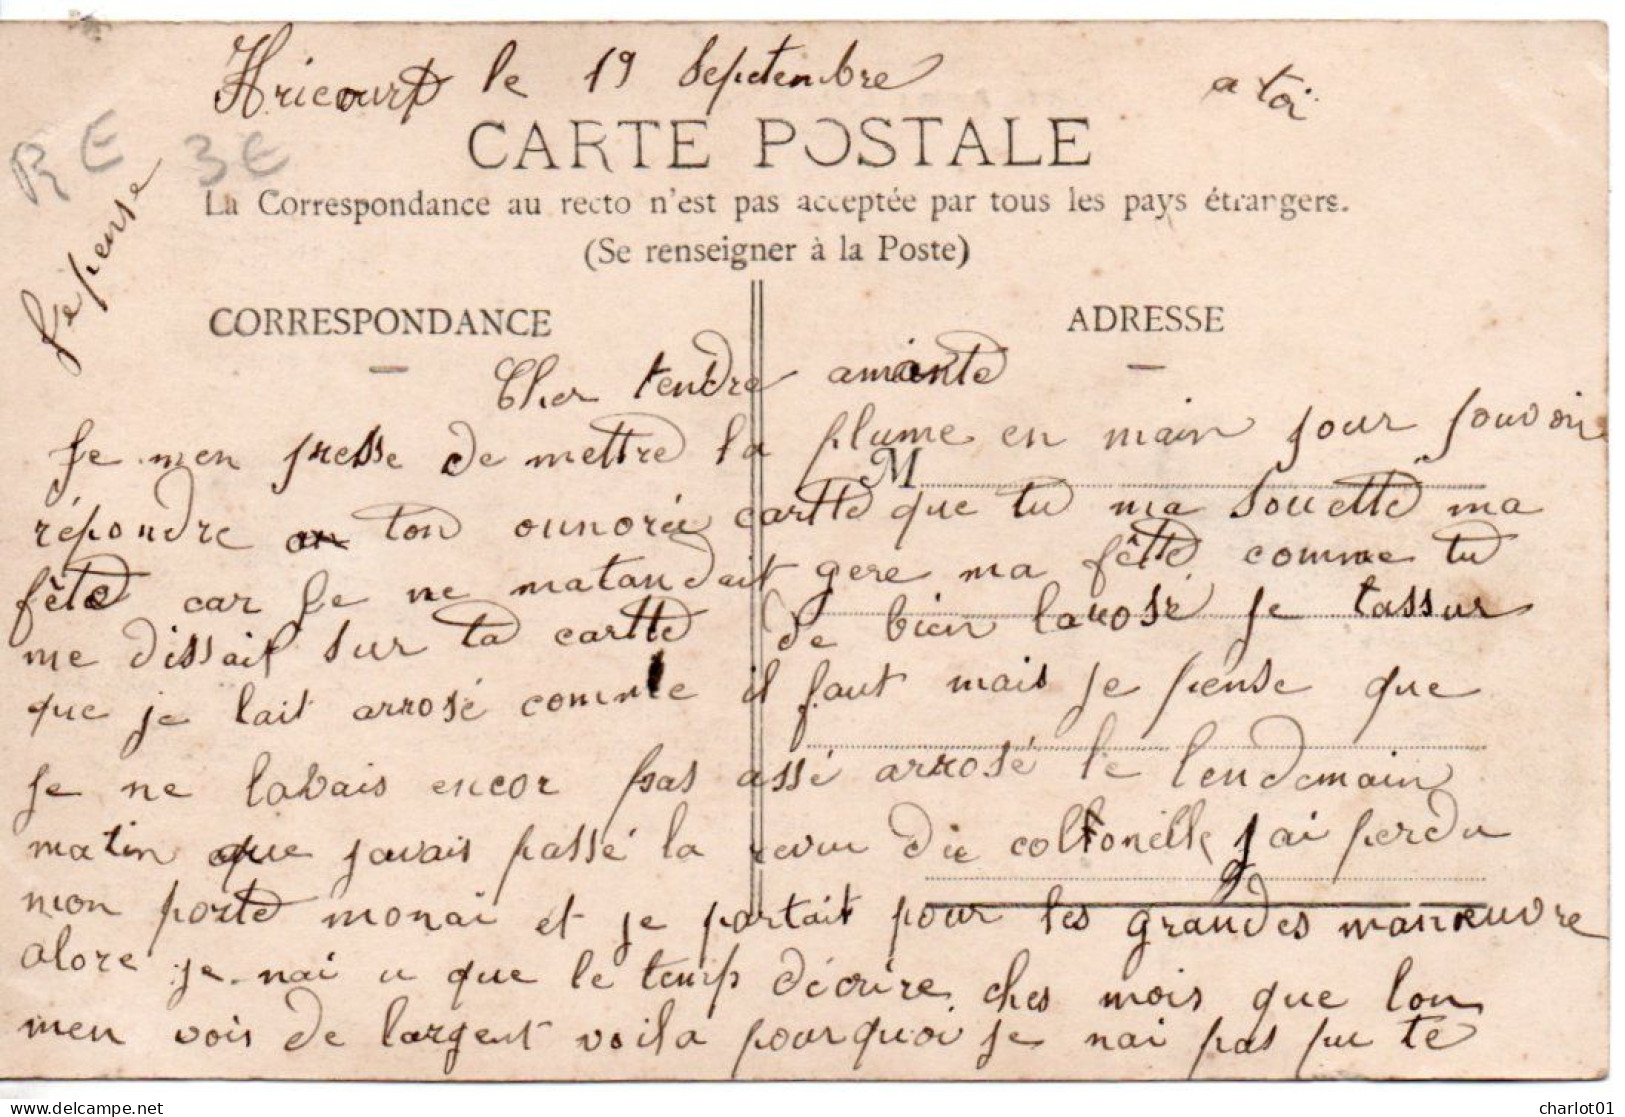 Hricourt le 19 Septembre
a toi
RE 3€
CARTE POSTALE
La Correspondance au recto n'est pas acceptée par tous les pays étrangers.
(Se renseigner à la Poste)
Je pense
CORRESPONDANCE
ADRESSE
Cher tendre amante
Je men presse de mettre la plume en main pour pouvoir
M
répondre an ton ounorée cartte que tu ma Souetté ma
fête car Je ne matandait gere ma fêtte comme tu
me dissait sur ta cartte de bien larosé je tassur
que je lait arrosé comme il faut mais je pense que
Je ne labais encor pas assé arrosé le lendemain
matin que javais passé la revu du coltonelle j'ai perdu
mon porte monai et je partait pour les grandes manœuvre
alore je nai u que le temp décrire ches mois que lon
men vois de largent voila pourquoi je nai pas pu te
charlot01